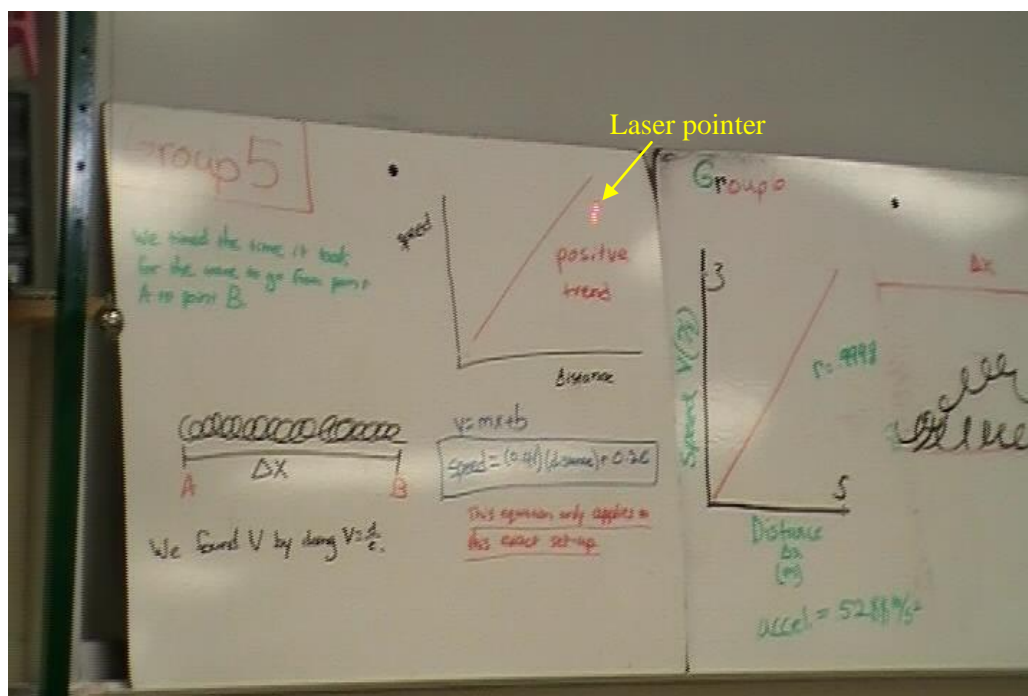 Laser pointer
Group 5
We timed the time it took
for the wave to go from point
A to point B.
speed
positve
trend
distance
ΔX
A
B
We found V by doing V=d/t.
v=mx+b
speed = (0.41)(distance) + 0.26
This equation only applies to
this exact set-up
Group
3
Speed
r=.9998
5
Distance
Δx
(m)
Δx
accel =